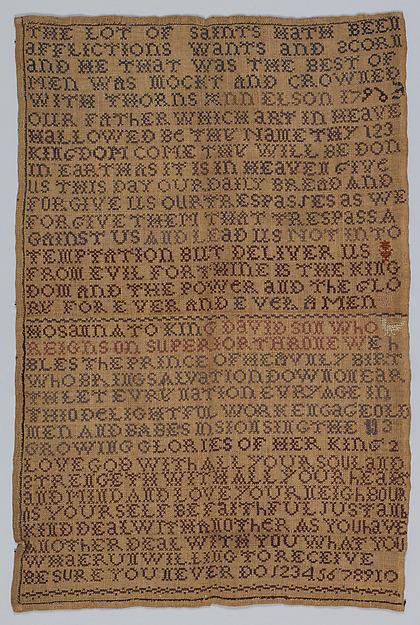 THE LOT OF SAINTS HATH BEEN
AFFLICTIONS WANTS AND SCORN
AND HE THAT WAS THE BEST OF
MEN WAS MOCKT AND CROWNED
WITH THORNS ANN ELSON 179
OUR FATHER WHICH ART IN HEAVE
HALLOWED BE THY NAME THY 123
KINGDOM COME THY WILL BE DON
IN EARTH AS IT IS IN HEAVEN GIVE
US THIS DAY OUR DAILY BREAD AND
FORGIVE US OUR TRESPASSES AS WE
FORGIVE THEM THAT TRESPASS A
GAINST US AND LEAD US NOT INTO
TEMPTATION BUT DELIVER US
FROM EVIL FOR THINE IS THE KING
DOM AND THE POWER AND THE GLO
RY FOR EVER AND EVER AMEN
HOSANNA TO KING DAVID SON WHO
REIGNS ON SUPERIOR THRONE WE
BLES THE PRINCE OF HEAVNLY BIRT
WHO BRING SALVATION DOWN ON EAR
TH LET EVRY NATION EVRY AGE IN
THIO DELIGHTFUL WORK ENGAGE OLD
MEN AND BABES IN SION SING THE
GROWING GLORIES OF HER KING
LOVE GOD WITH ALL YOUR SOUL AND
STRENGTH WITH ALL YOUR HEART
AND MIND AND LOVE YOUR NEIGHBOUR
AS YOURSELF BE FAITHFUL JUST AND
KIND DEAL WITH ANOTHER AS YOU HAVE
ANOTHER DEAL WITH YOU WHAT YOU
WHAERUNWILLING TO RECEIVE
BE SURE YOU NEVER DO 12345678910